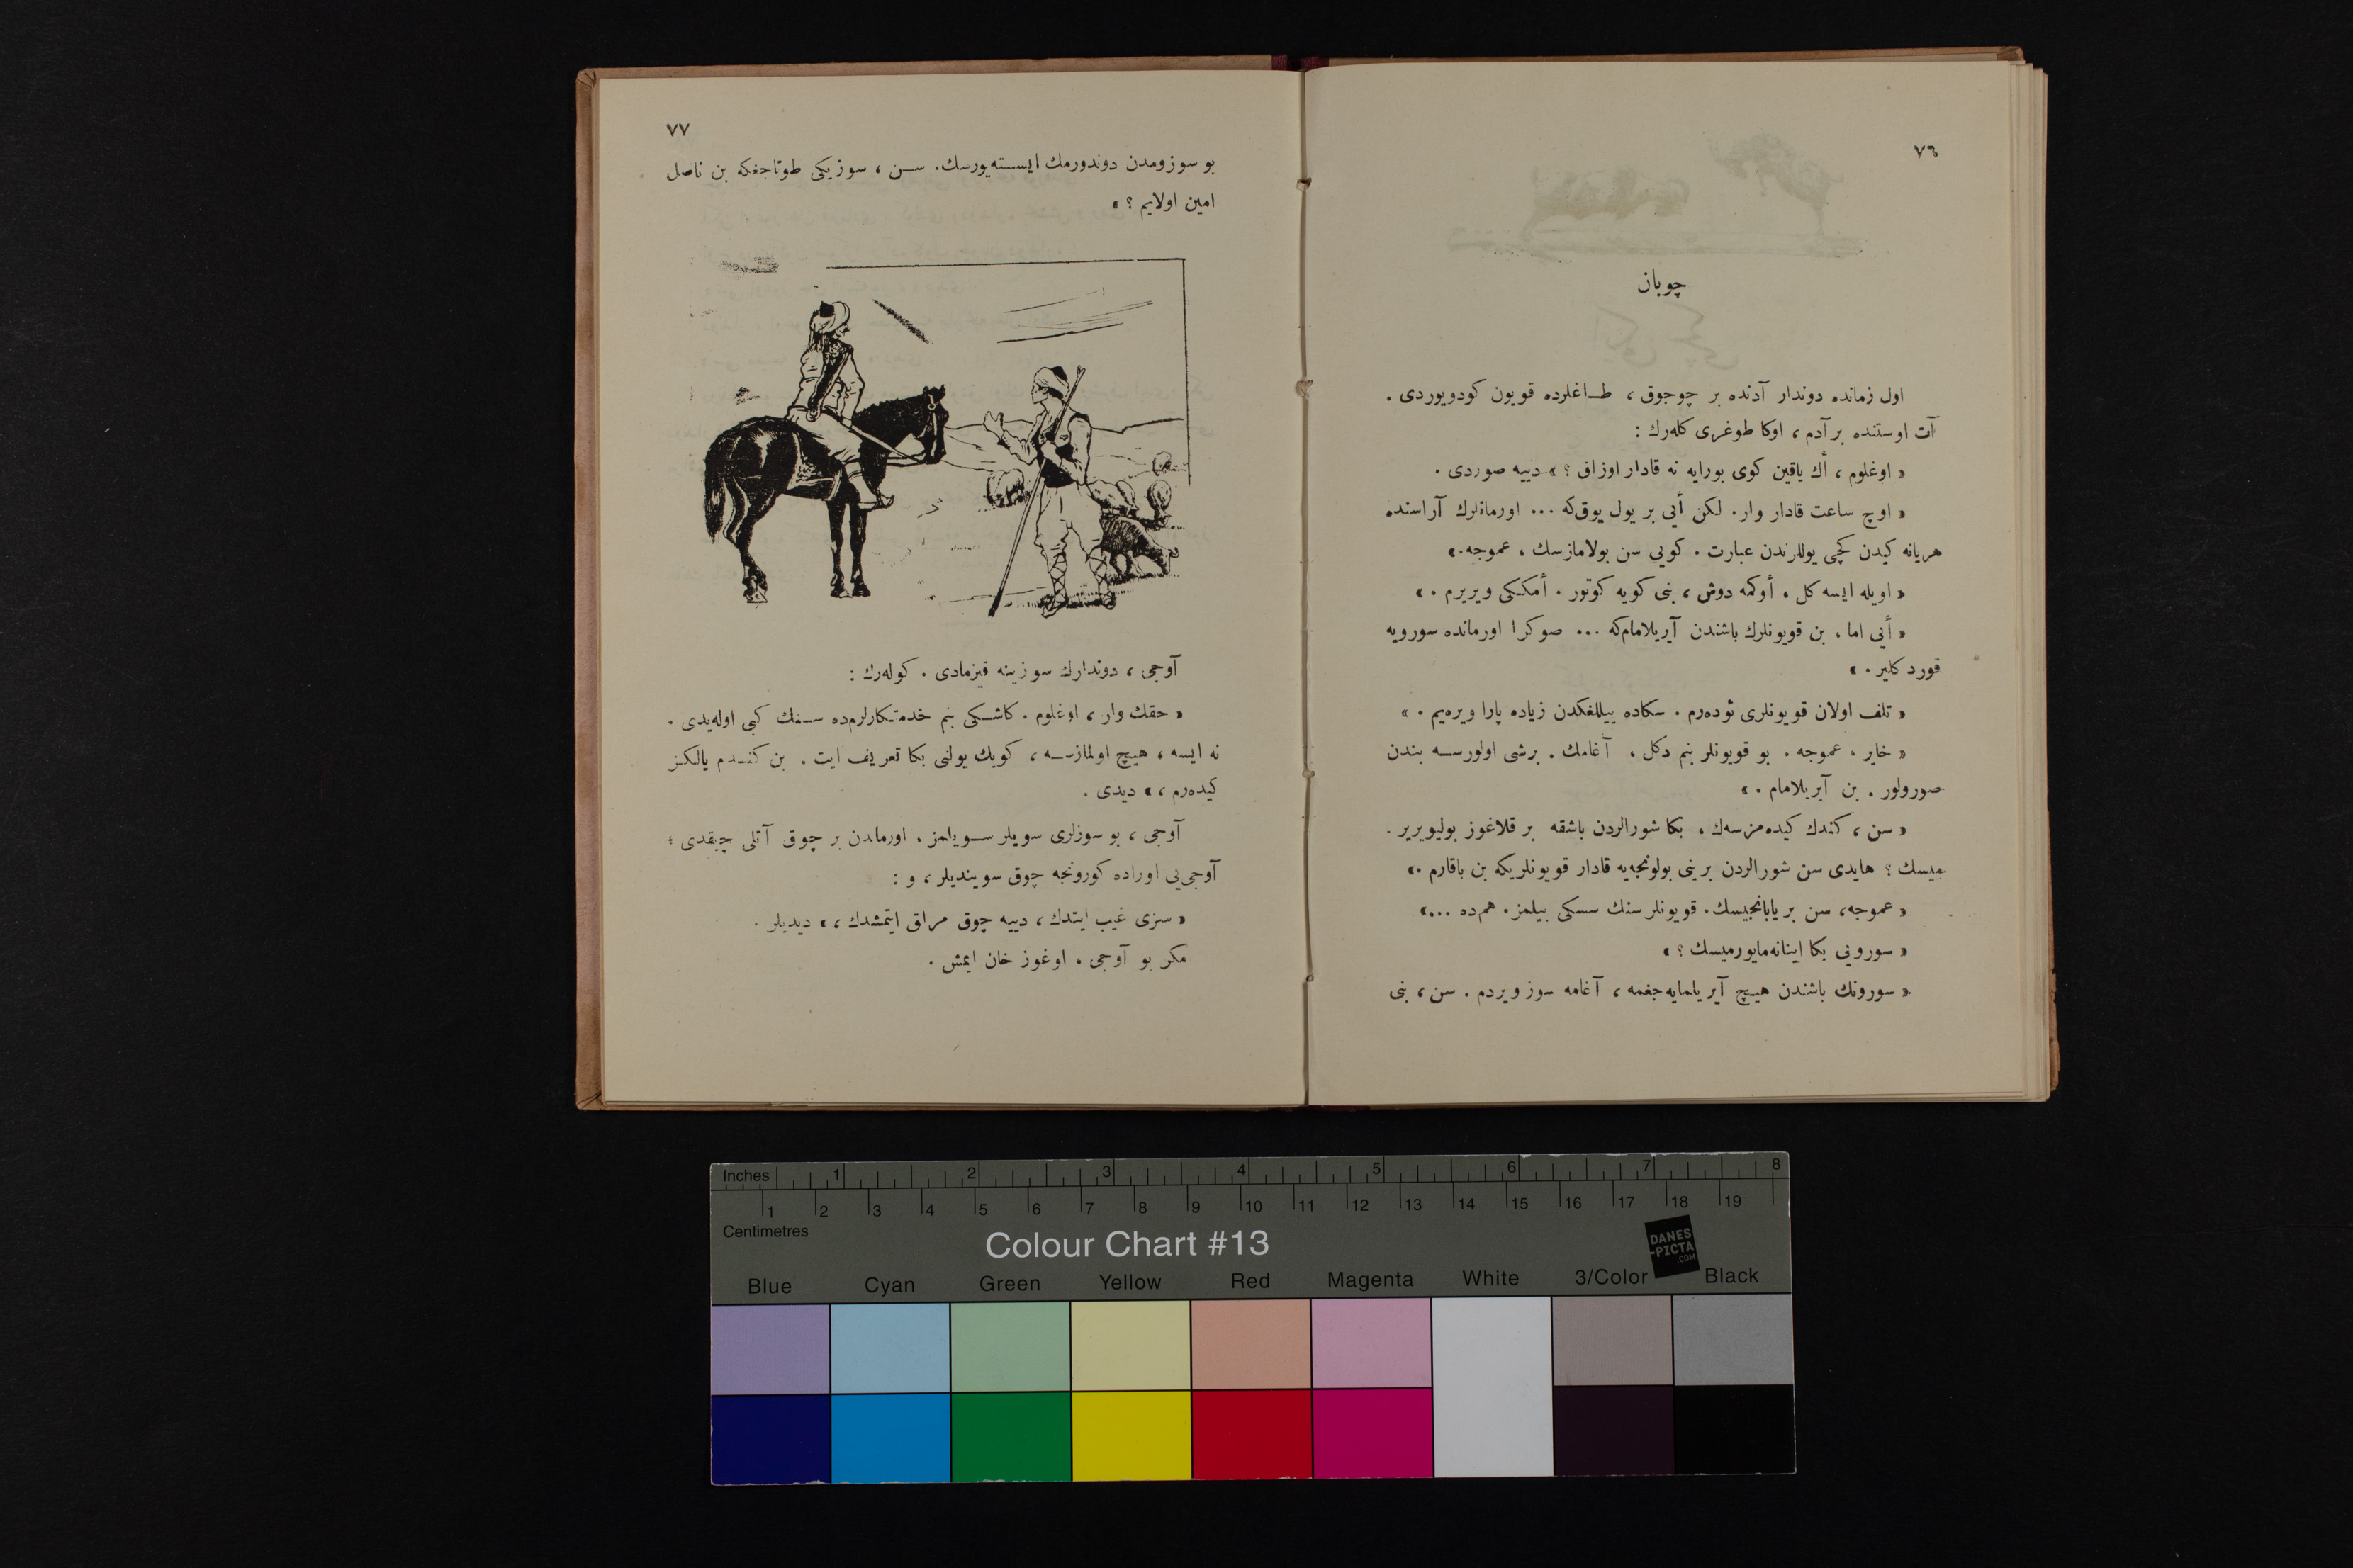 ٧٦
چوبان
اول زمانده دوندار آدنده بر چوجوق ، طاغلرده قویون کودویوردی .
آت اوستنده بر آدم ، اوکا طوغری کلەرك :
« اوغلوم ، أك یاقین کوی بورایه نه قادار اوزاق ؟ » دییه صوردی .
« اوچ ساعت قادار وار. لکن أیی بر یول یوق‌که ... اورمانلرك آراسنده
هریانه کیدن کچی یوللرندن عبارت . کویی سن بولامازسك ، عموجه.»
« اویله ایسه کل ، أوکمه دوش ، بنی کویه کوتور . أمککی ویریرم . »
« أیی اما ، بن قویونلرك باشندن آیریلامام‌که ... صوکرا اورمانده سورویه
قورد کلیر . »
« تلف اولان قویونلری ئوده‌رم . سکاده ییللغکدن زیاده پارا ویره‌یم . »
« خایر ، عموجه . بو قویونلر بنم دکل ، آغامك . برشی اولورسه بندن
صورولور . بن آیریلامام . »
« سن ، کندك کیده‌مزسه‌ك ، بکا شورالردن باشقه بر قلاغوز بولیویریر
میسك ؟ هایدی سن شورالردن برینی بولونجه‌یه قادار قویونلریکه بن باقارم .»
« عموجه، سن بر یابانجیسك. قویونلر سنك سسکی بیلمز. هم‌ده ...»
« سورویی بکا اینانه‌مایورمیسك ؟ »
« سورونك باشندن هیچ آیریلمایه‌جغمه ، آغامه سوز ویردم . سن ، بنی
٧٧
بو سوزومدن دوندورمك ایسته‌یورسك. سن ، سوزیکی طوتاجغکه بن ناصل
امین اولایم ؟ »
آوجی ، دوندارك سوزینه قیزمادی . کوله‌رك :
« حقك وار ، اوغلوم . کاشکی بنم خدمتکارلرم‌ده سنك کبی اوله‌یدی .
نه ایسه ، هیچ اولمازسه ، کویك یولنی بکا تعریف ایت . بن کندم یالکز
کیده‌رم ، » دیدی .
آوجی ، بو سوزلری سویلر سویلمز ، اورماندن بر چوق آتلی چیقدی ؛
آوجی‌یی اوراده کورونجه چوق سویندیلر ، و :
« سزی غیب ایتدك ، دییه چوق مراق ایتمشدك ، » دیدیلر .
مکر بو آوجی ، اوغوز خان ایمش .
Inches 1 2 3 4 5 6 7 8
1 2 3 4 5 6 7 8 9 10 11 12 13 14 15 16 17 18 19
Centimetres
Colour Chart #13
DANES
-PICTA
.COM
Blue Cyan Green Yellow Red Magenta White 3/Color Black